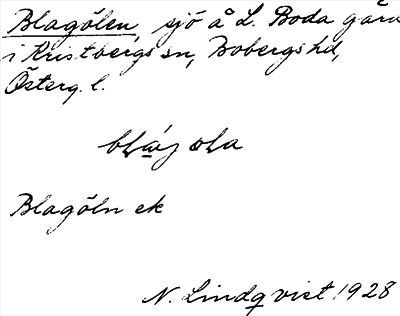 Blagölen, sjö å L. Boda gård
i Kristbergs sn, Bobergs hd,
Österg. l.
Blagöln ek
N. Lindqvist 1928